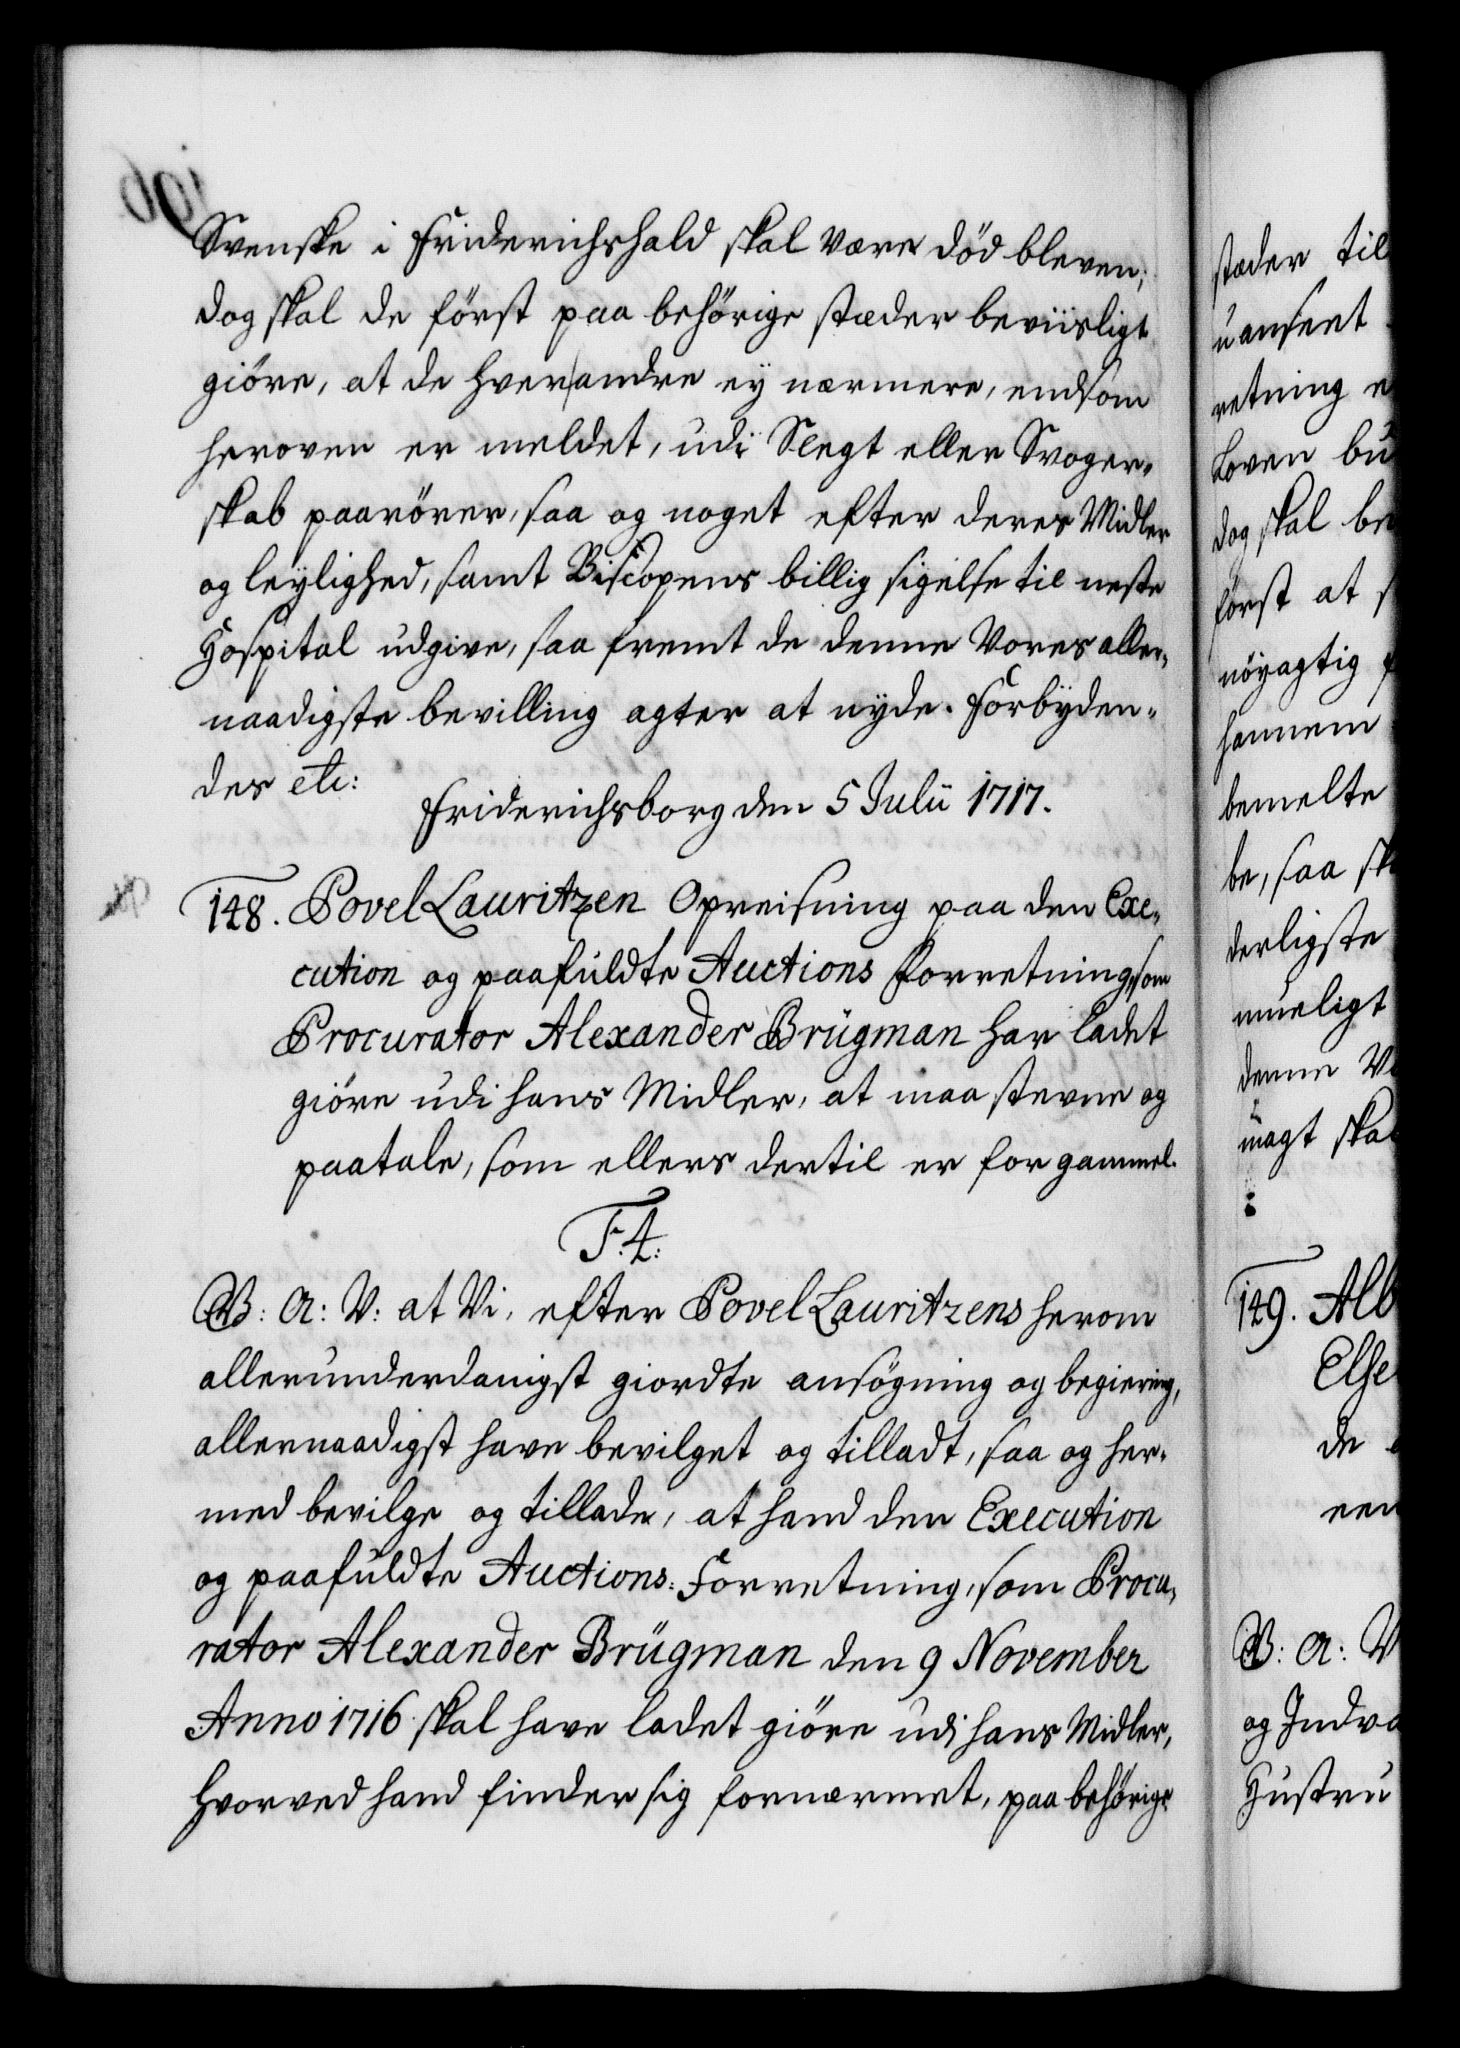 Svenske i Friderichshald skal være död bleven,
dog skal de först paa behörige stæder beviisligt
giöre, at de hverandre ey nærmere, end som
heroven er meldet, udi Slegt eller Svoger-
skab paarörer, saa og noget efter deres Midler
og leylighed, samt Biscopens billig sigelse til neste
Hospital udgive, saa fremt de denne Vores aller-
naadigste bevilling agter at nyde. Forbyden-
des etc:
Friderichsborg den 5 Julii 1717.
148. Povel Lauritzen Opreisning paa den Exe-
cution og paafuldte Auctions forretning, som
Procurator Alexander Brügman har ladet
giöre udi hans Midler, at maa stevne og
paatale, som ellers dertil er for gammel.
F.4.
V: A: V: at Vi, efter Povel Lauritzens herom
allerunderdanigst giordte ansögning og begiering,
allernaadigst have bevilget og tilladt, saa og her-
med bevilge og tillade, at hand den Execution
og paafuldte Auctions-Forretning, som Procu-
rator Alexander Brügman den 9 November
Anno 1716 skal have ladet giöre udi hans Midler,
hvorved hand finder sig fornærmet, paa behörige
stæder til
uanseet
retning
Loven
dog skal
först at
nöyagtig
hannem
bemelte
be, saa
derligste
mueligt
denne
magt skal
149. Alb
Else
de
een
V: A: V
og Indvo
Hustru